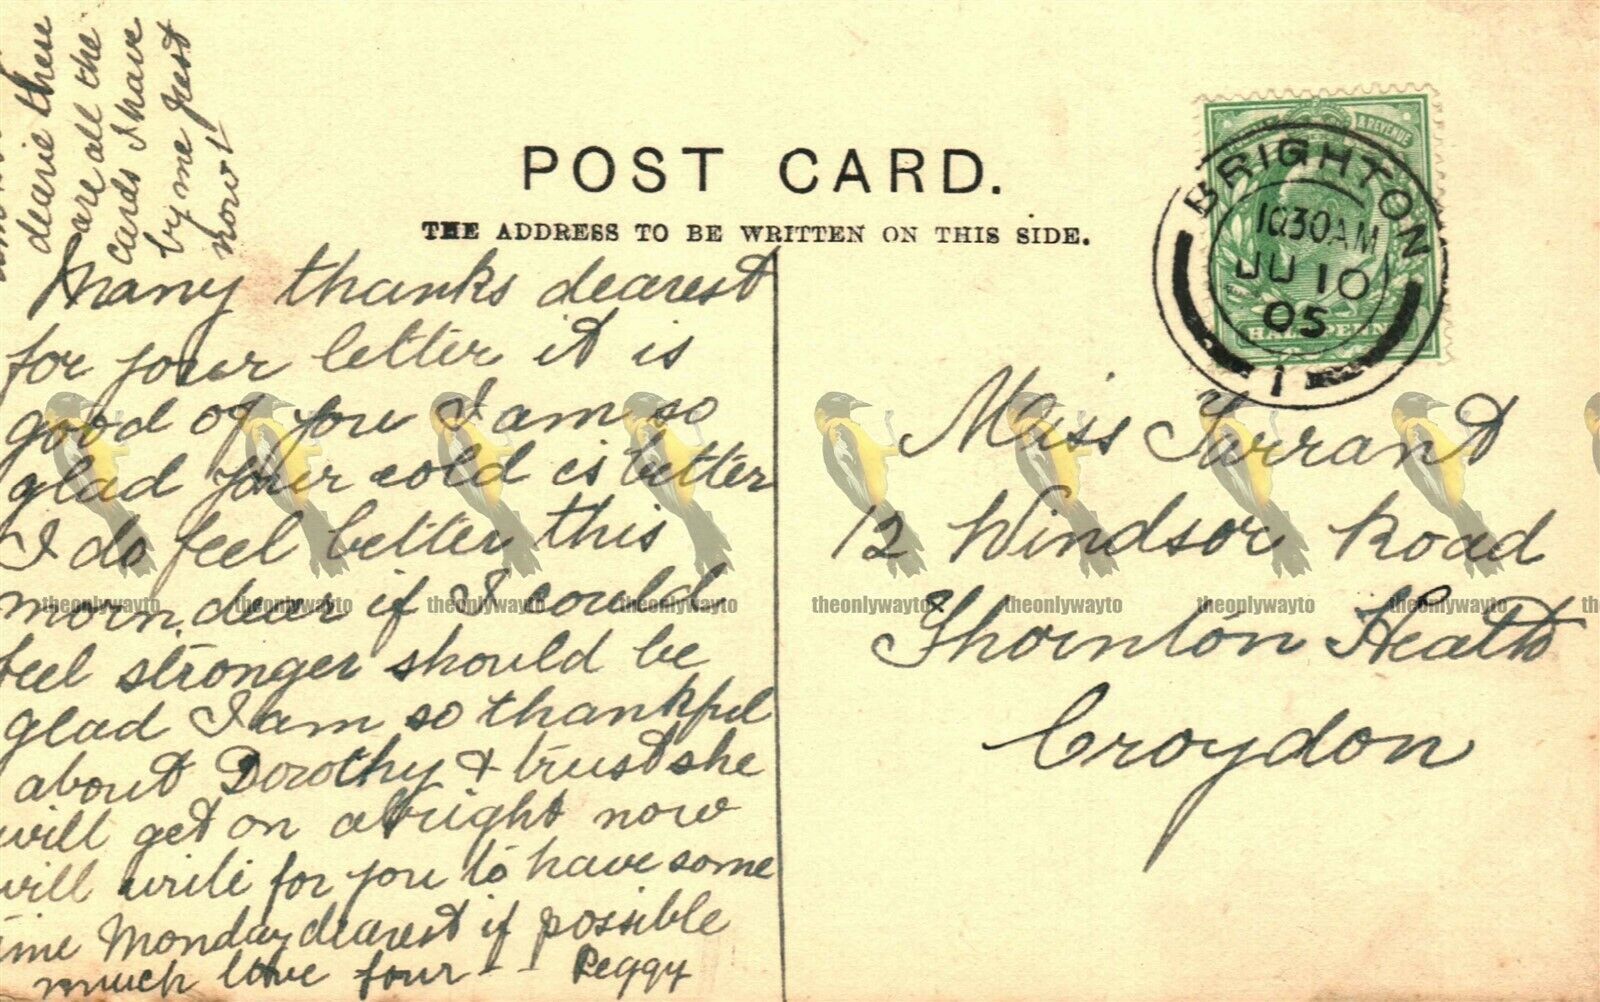 dearie these
are all the
cards I have
by me just
now!
POST CARD.
THE ADDRESS TO BE WRITTEN ON THIS SIDE.
& REVENUE
HALFPENNY
BRIGHTON
10 30 AM
JU 10
05
1
Many thanks dearest
for your letter it is
good of you I am so
glad your cold is better
I do feel better this
morn. dear if I could
feel stronger should be
glad I am so thankful
about Dorothy & trust she
will get on alright now
will write for you to have some
time Monday dearest if possible
much love four - - Peggy
Miss Tarrant
12 Windsor Road
Thornton Heath
Croydon
theonlywayto theonlywayto theonlywayto theonlywayto theonlywayto theonlywayto theonlywayto theonlywayto th